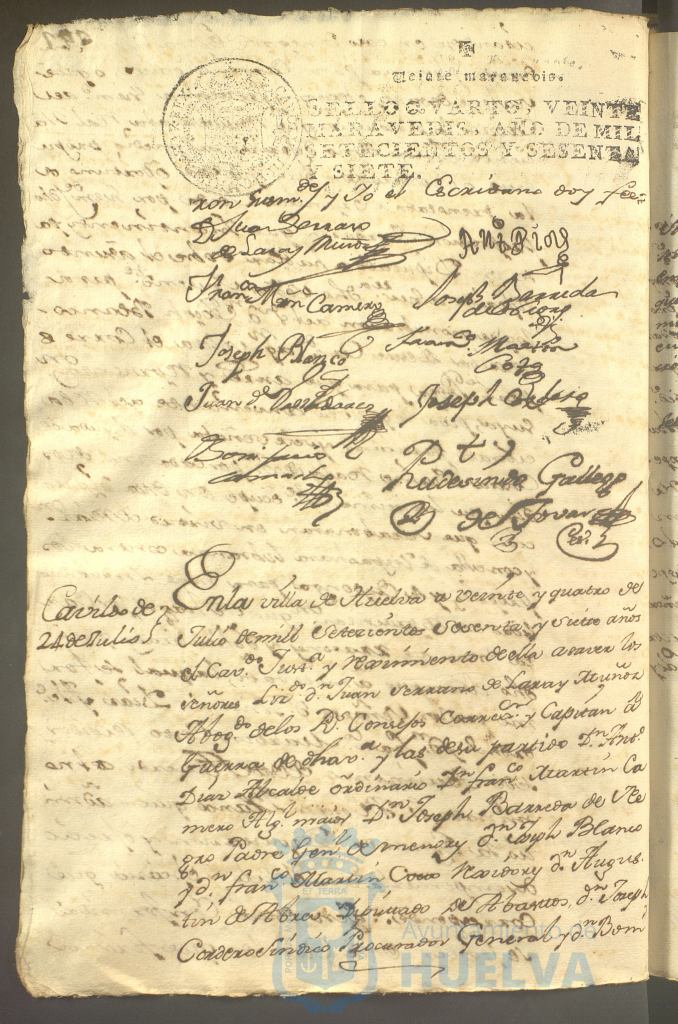 Veinte maravedis.
SELLO QVARTO, VEINTE
MARAVEDIS, AÑO DE MIL
SETECIENTOS Y SESENTA
Y SIETE.
ron sus md.s y Yo el Escribano doy fee
Juan Serrano
de Lara y Muñoz
Ant Diaz
Fran.co Mrn Camero
Joseph Barreda
Joseph Blanco
Fran.co Martin
Coto
Juan de
Joseph
Rudesindo Gallego
de Tovar
Cavildo de
24 de Julio
En la villa de Huelva a veinte y quatro de
Julio de mill setecientos sesenta y siete años
el Cav.do Just.a y Reximiento de ella a saver los
señores Lic.do d.n Juan Serrano de Lara y Muñoz
Abog.do de los R.s Consejos Correx.or y Capitan a
Guerra de dha v.a y las de su partido D.n Ant.o
Diaz Alcalde ordinario D.n fran.co Martin Ca
mero Alg.l maior D.n Joseph Barreda de Ne
gro Padre Gen.l de menores d.n Joseph Blanco
y d.n fran.co Martin Coto Rexidores d.n Augus
tin de Mora Diputado de Abastos, d.n Joseph
Cordero Sindico Procurador General y d.n Boni
Ayuntamiento de
HUELVA